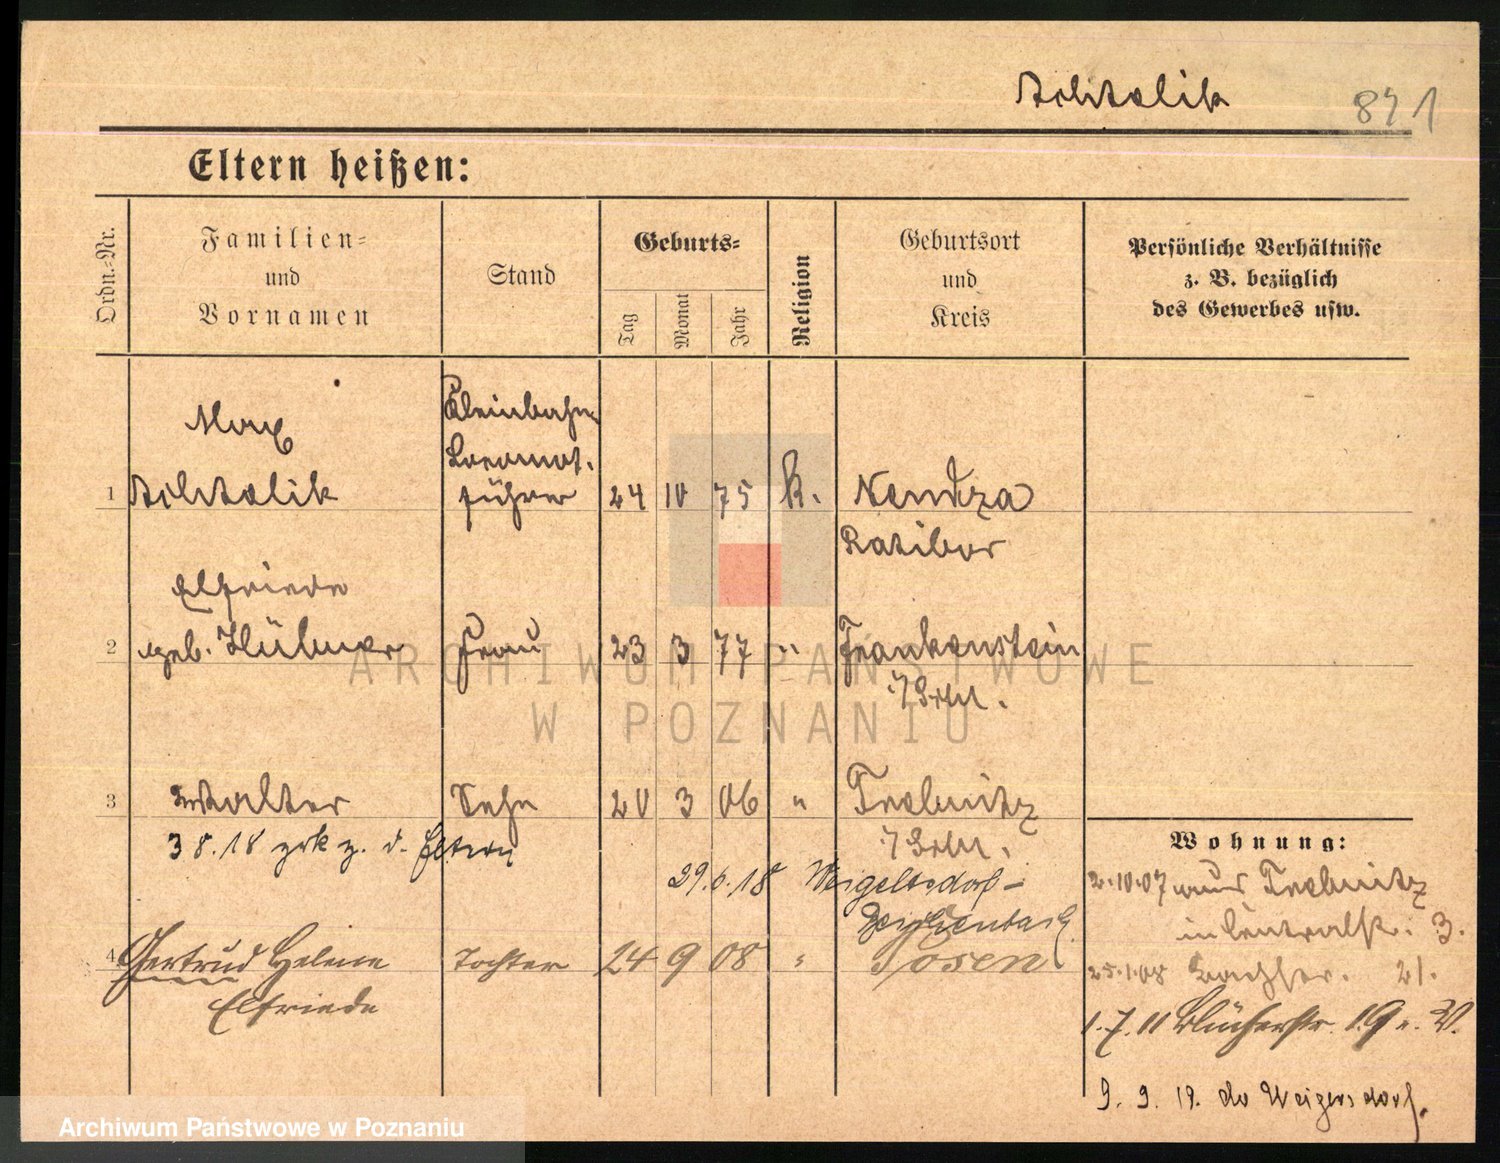 871
Eltern heißen:
Ordn.-Nr.
Familien-
und
Vornamen
Stand
Geburts-
Tag
Monat
Jahr
Religion
Geburtsort
und
Kreis
Persönliche Verhältnisse
z. B. bezüglich
des Gewerbes usw.
Max
Kleinbahn
Locomot.
1 führer 24 10 75 K. Nendza
Ratibor
Elfriede
2 geb. Frau 23 3 77 " Frankenstein
i/Schl.
3 Walter Sohn 20 3 06 " Trebnitz
i/Schl.
3 8. 18 zrk z. d. Eltern
29.6.18
4 Gertrud Helene Tochter 24 9 08 " Posen
Elfriede
Wohnung:
2.10.07 aus Trebnitz
in Centralstr. 3.
25.1.08 21.
1.7.11 Blücherstr. 19
9. 9. 19. Weigersdorf.
ARCHIWUM PAŃSTWOWE
W POZNANIU
Archiwum Państwowe w Poznaniu